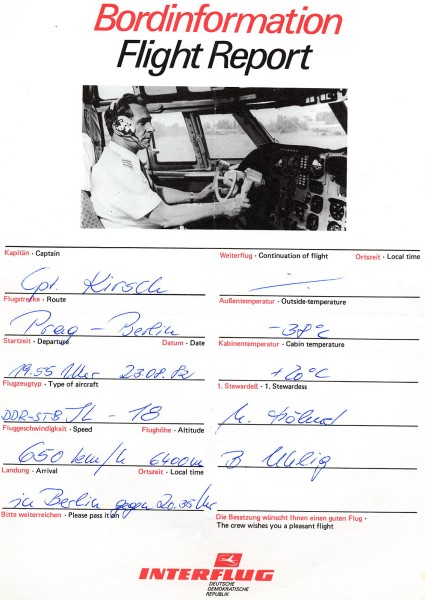 Bordinformation
Flight Report
Kapitän · Captain
Cpt. Kirsch
Weiterflug · Continuation of flight Ortszeit · Local time
Flugstrecke · Route
Prag - Berlin
Außentemperatur · Outside-temperature
-38°C
Startzeit · Departure Datum · Date
19.55 Uhr 23.08.82
Kabinentemperatur · Cabin temperature
+20°C
Flugzeugtyp · Type of aircraft
DDR-STB IL - 18
1. Stewardeß · 1. Stewardess
Fluggeschwindigkeit · Speed Flughöhe · Altitude
650 km/h 6400m
B. Uhlig
Landung · Arrival Ortszeit · Local time
in Berlin gegen 20.35 Uhr
Bitte weiterreichen · Please pass it on
Die Besatzung wünscht Ihnen einen guten Flug ·
The crew wishes you a pleasant flight
INTERFLUG
DEUTSCHE
DEMOKRATISCHE
REPUBLIK